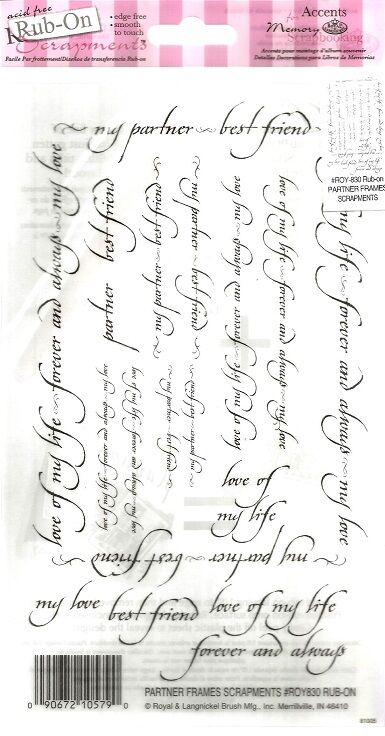 acid free
Rub-On
Scrapments
• edge free
• smooth
to touch
Facile Par frottement/Diseños de transferencia Rub-on
Accents
for
Memory
Scrapbooking
Accents pour montage d'album souvenir
Detalles Decorations para Libros de Memorias
#ROY-830 Rub-on
PARTNER FRAMES
SCRAPMENTS
my partner ~ best friend
love of my life ~ forever and always ~ my love
partner best friend
my partner ~ best friend
my partner ~ best friend
love of my life ~ forever and always ~ my love
love of my life ~ forever and always ~ my love
my life ~ forever and always ~ my love
love of my life ~ forever and always ~ my love
love of my life ~ forever and always ~ my love
my partner ~ best friend
my partner ~ best friend
love of
my life
my partner ~ best friend
my love best friend love of my life
forever and always
0 90672 10579 0
PARTNER FRAMES SCRAPMENTS #ROY830 RUB-ON
© Royal & Langnickel Brush Mfg., Inc. Merrillville, IN 46410